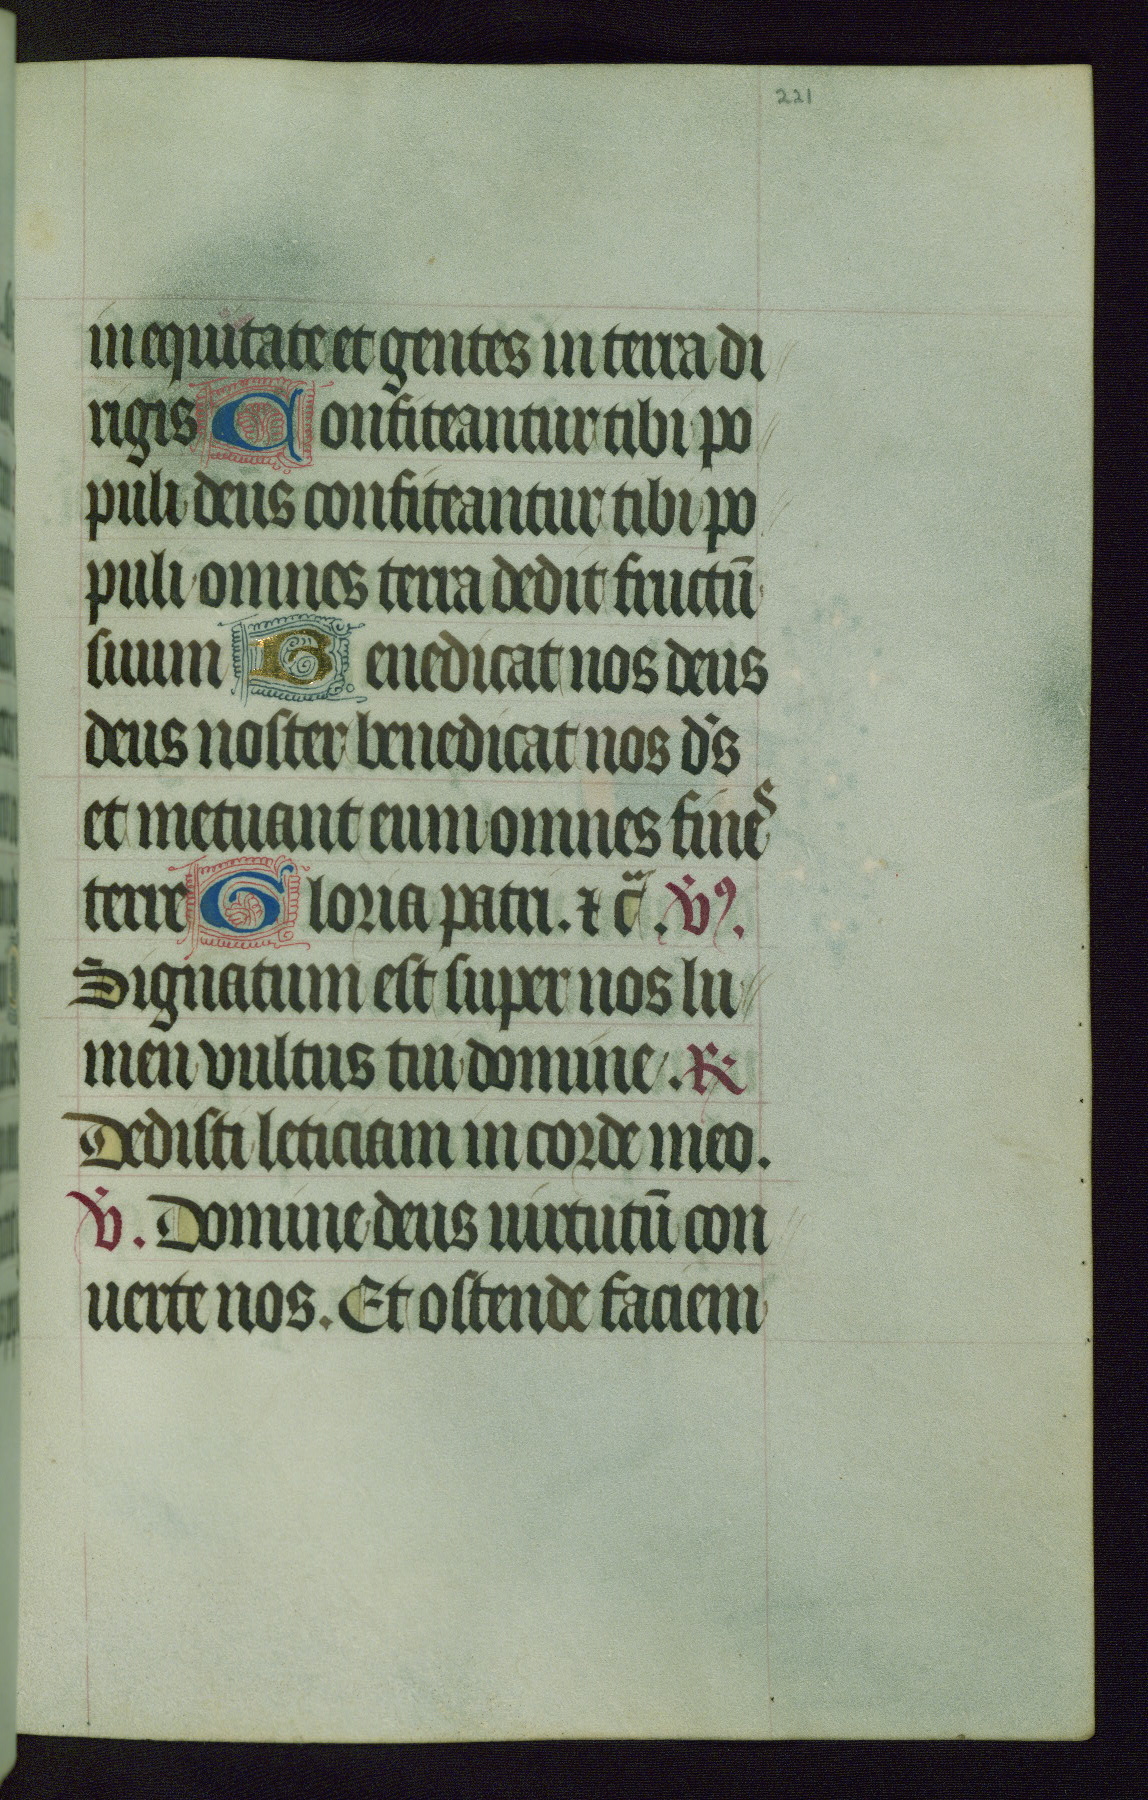 221
in equitate et gentes in terra di
rigis Confiteantur tibi po
puli deus confiteantur tibi po
puli omnes terra dedit fructū
suum Benedicat nos deus
deus noster benedicat nos d's
et metuant eum omnes fines
terre Gloria patri. ⁊ c̃. V⁹.
Signatum est super nos lu
men vultus tui domine. ℟
Dedisti leticiam in corde meo.
V. Domine deus uirtutū con
uerte nos. Et ostende faciem